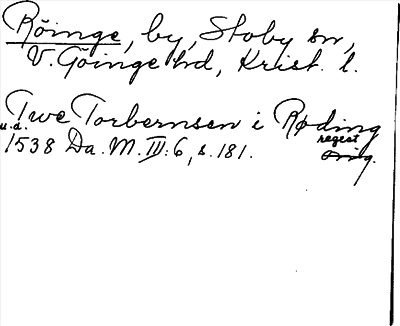 Röinge, by, Stoby sn,
V. Göinge hd, Krist. l.
Twe Torbernsen i Røding
u.d. regest
1538 Da. M. III:6, s. 181. orig.